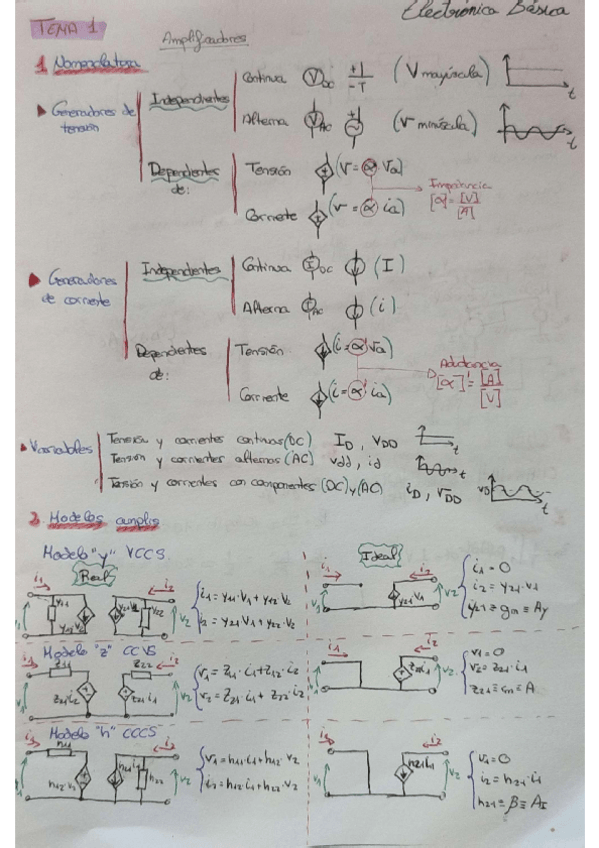 Electrónica Básica
TEMA 1
Amplificadores
1 Nomenclatura
▶ Generadores de tensión
Independientes
Continua V DC + - (V mayúscula) t
Alterna V AC + (v minúscula) t
Dependientes de:
Tensión (v = α va)
Corriente (v = α ia)
Impedancia
[α] = [V]/[A]
▶ Generadores de corriente
Independientes
Continua I DC (I)
Alterna AC (i)
Dependientes de:
Tensión (i = α' va)
Corriente (i = α' ia)
Admitancia
[α]' = [A]/[V]
▶ Variables
Tensión y corrientes continuas (DC) ID, VDD t
Tensión y corrientes alternas (AC) vdd, id t
Tensión y corrientes con componentes (DC) y (AC) iD, vDD vD t
2. Modelos amplis
Modelo "y" VCCS
Real
Ideal
i1 y11 y12·V2 y21·V1 y22 i2 V1 V2
i1 = y11·V1 + y12·V2
i2 = y21·V1 + y22·V2
i1 i2 y21·V1 V1 V2
i1 = 0
i2 = y21·v1
y21 ≡ gm ≡ Ay
Modelo "z" CCVS
z11 z12 i2 z21 i1 z22 i2 V1 V2
v1 = z11·i1 + z12·i2
v2 = z21·i1 + z22·i2
i1 i2 z21 i1 v2
v1 = 0
v2 = z21·i1
Modelo "h" CCCS
i1 h11 h12·v2 h21 i1 h22 i2 v1 v2
v1 = h11·i1 + h12·v2
i1 i2 h21 i1 v1 v2
v1 = 0
i2 = h21·i1
h21 ≡ β ≡ AI